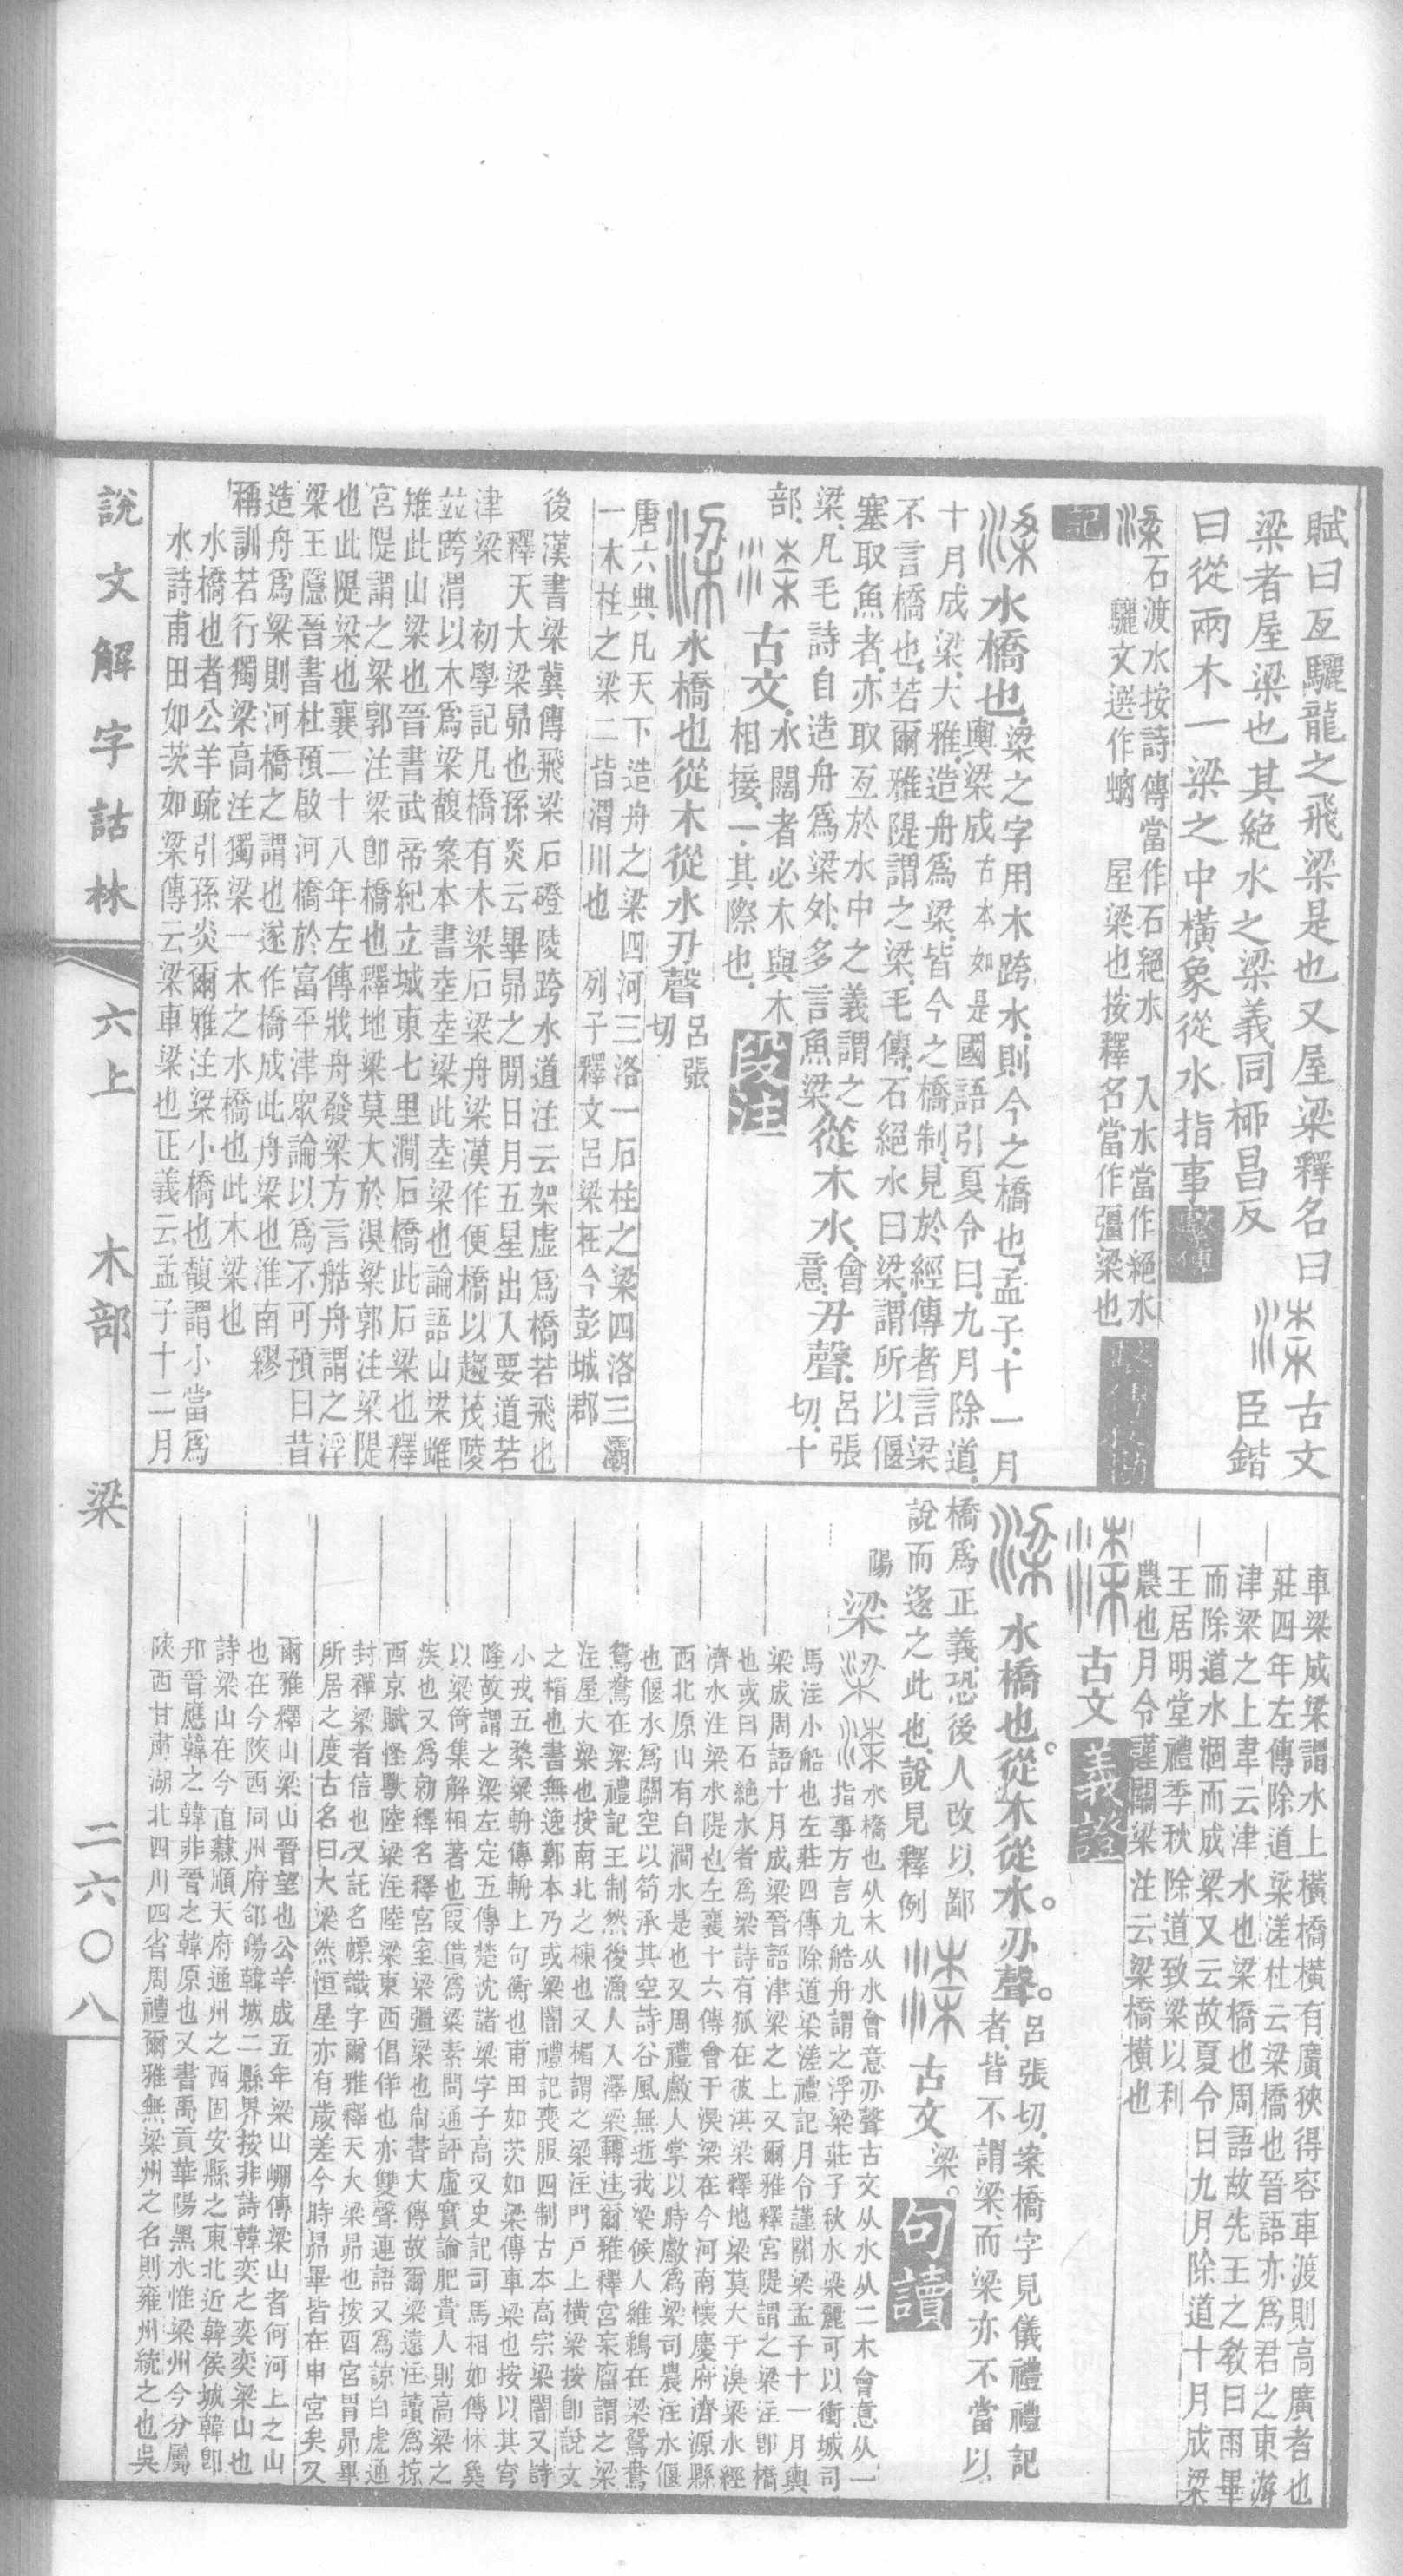 賦曰亙驪龍之飛梁是也又屋梁釋名曰
梁者屋梁也其絕水之梁義同栭昌反
古文
臣鍇
曰從兩木一梁之中橫象從水指事
石渡水按詩傳當作石絕水
入水當作絕水
驪文選作螭
屋梁也按釋名當作彊梁也
記
水橋也
梁之字用木跨水則今之橋也孟子十一月
輿梁成
古本如是
國語引夏令曰九月除道
十月成梁大雅造舟爲梁皆今之橋制見於經傳者言梁
不言橋也若爾雅隄謂之梁毛傳石絕水曰梁謂所以偃
塞取魚者亦取亙於水中之義謂之
梁凡毛詩自造舟爲梁外多言魚梁
從木水
會意
刅聲
呂張切十
部
古文
水闊者必木與木
相接一其際也
段注
水橋也從木從水刅聲
呂張切
唐六典凡天下造舟之梁四河三洛一石柱之梁四洛三灞
一木柱之梁二皆渭川也
列子釋文呂梁在今彭城郡
後漢書梁冀傳飛梁石磴陵跨水道注云架虛爲橋若飛也
釋天大梁昴也孫炎云畢昴之閒日月五星出入要道若
津梁
初學記凡橋有木梁石梁舟梁漢作便橋以趨茂陵
並跨渭以木爲梁馥案本書
梁此
梁也論語山梁雌
雉此山梁也晉書武帝紀立城東七里澗石橋此石梁也釋
宮隄謂之梁郭注梁卽橋也釋地梁莫大於湨梁郭注梁隄
也此隄梁也襄二十八年左傳戕舟發梁方言艁舟謂之浮
梁王隱晉書杜預啟河橋於富平津眾論以爲不可預曰昔
造舟爲梁則河橋之謂也遂作橋成此舟梁也淮南繆
稱訓若行獨梁高注獨梁一木之水橋也此木梁也
水橋也者公羊疏引孫炎爾雅注梁小橋也馥謂小當爲
水詩甫田如茨如梁傳云梁車梁也正義云孟子十二月
車梁成梁謂水上橫橋橫有廣狹得容車渡則高廣者也
莊四年左傳除道梁溠杜云梁橋也晉語亦爲君之東游
津梁之上韋云津水也梁橋也周語故先王之教曰雨畢
而除道水涸而成梁又云故夏令曰九月除道十月成梁
王居明堂禮季秋除道致梁以利
農也月令謹關梁注云梁橋橫也
古文
義證
水橋也從木從水刅聲
呂張切案橋字見儀禮禮記
者皆不謂梁而梁亦不當以
橋爲正義恐後人改以鄙
說而迻之此也說見釋例
古文
梁
句讀
陽
梁
水橋也从木从水會意刅聲古文从水从二木會意从一
指事方言九艁舟謂之浮梁莊子秋水梁麗可以衝城司
馬注小船也左莊四傳除道梁溠禮記月令謹關梁孟子十一月輿
梁成周語十月成梁晉語津梁之上又爾雅釋宮隄謂之梁注卽橋
也或曰石絕水者爲梁詩有狐在彼淇梁釋地梁莫大于湨梁水經
濟水注梁水隄也左襄十六傳會于湨梁在今河南懷慶府濟源縣
西北原山有白澗水是也又周禮䱷人掌以時䱷爲梁司農注水偃
也偃水爲關空以笱承其空詩谷風無逝我梁候人維鵜在梁鴛鴦
鴛鴦在梁禮記王制然後漁人入澤梁轉注爾雅釋宮杗廇謂之梁
注屋大梁也按南北之棟也又楣謂之梁注門戶上橫梁按卽說文
之楣也書無逸鄭本乃或梁闇禮記喪服四制古本高宗梁闇又詩
小戎五楘梁輈傳輈上句衡也甫田如茨如梁傳車梁也按以其穹
隆故謂之梁左定五傳楚沈諸梁字子高又史記司馬相如傳㤄奠
以梁倚集解相著也叚借爲粱素問通評虛實論肥貴人則高梁之
疾也又爲勍釋名釋宮室梁彊梁也尙書大傳故爾梁遠注讀爲掠
西京賦怪獸陸梁注陸梁東西倡佯也亦雙聲連語又爲諒白虎通
封禪梁者信也又託名幖識字爾雅釋天大梁昴也按酉宮胃昴畢
所居之度古名曰大梁然恒星亦有歲差今時昴畢皆在申宮矣又
爾雅釋山梁山晉望也公羊成五年梁山崩傳梁山者何河上之山
也在今陝西同州府郃陽韓城二縣界按非詩韓奕之奕奕梁山也
詩梁山在今直隸順天府通州之西固安縣之東北近韓侯城韓卽
邗晉應韓之韓非晉之韓原也又書禹貢華陽黑水惟梁州今分屬
陝西甘肅湖北四川四省周禮爾雅無梁州之名則雍州統之也吳
說文解字詁林
六上
木部
梁
二六〇八